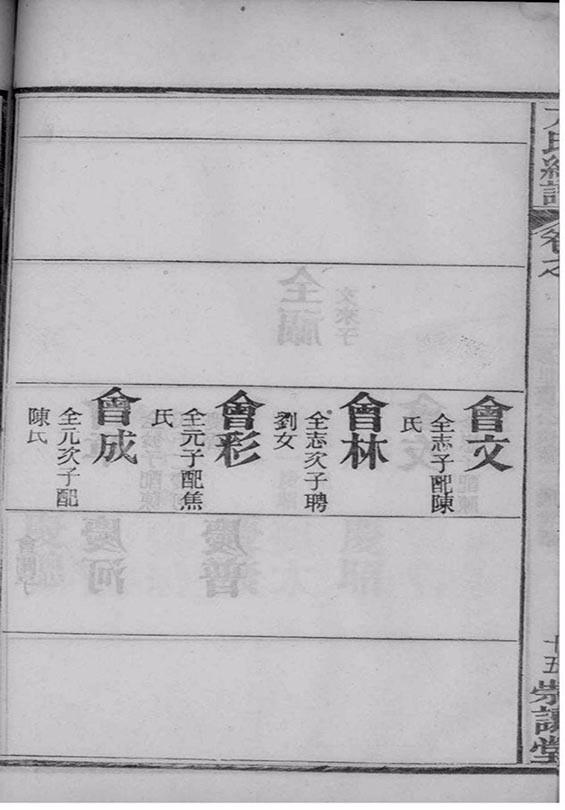 卷之
十五
崇讓堂
會文
全志子配陳
氏
會林
全志次子聘
劉女
會彩
全元子配焦
氏
會成
全元次子配
陳氏